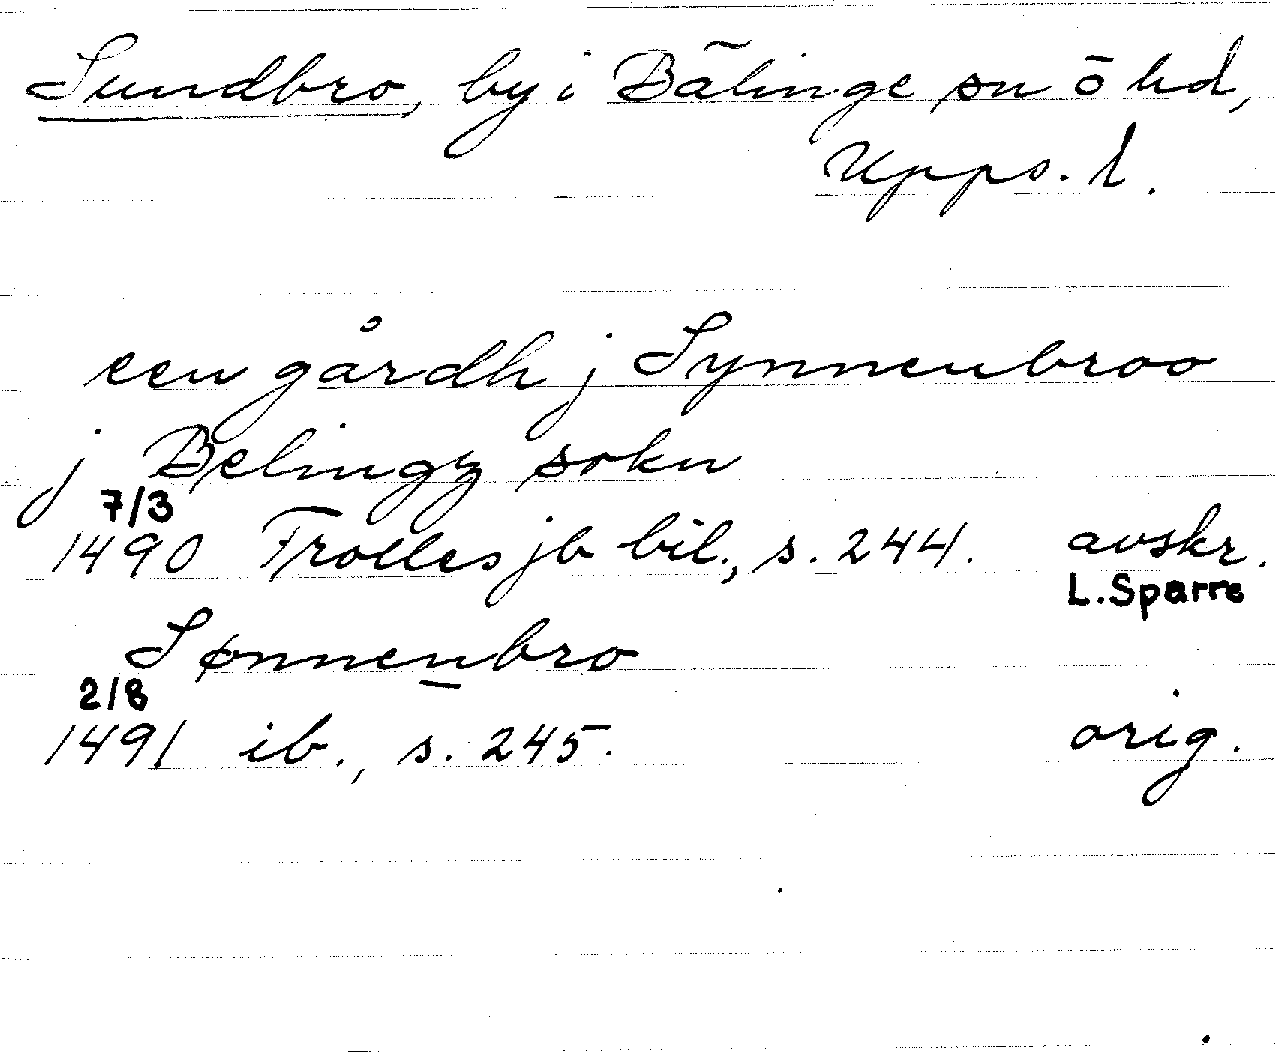 Sundbro, by i Bälinge sn ö hd,
Upps. l.
een gårdh j Synnenbroo
j Belingz sokn
7/3
1490 Trolles jb bil., s. 244. avskr.
L. Sparre
Sønnenbro
2/8
1491 ib., s. 245. orig.